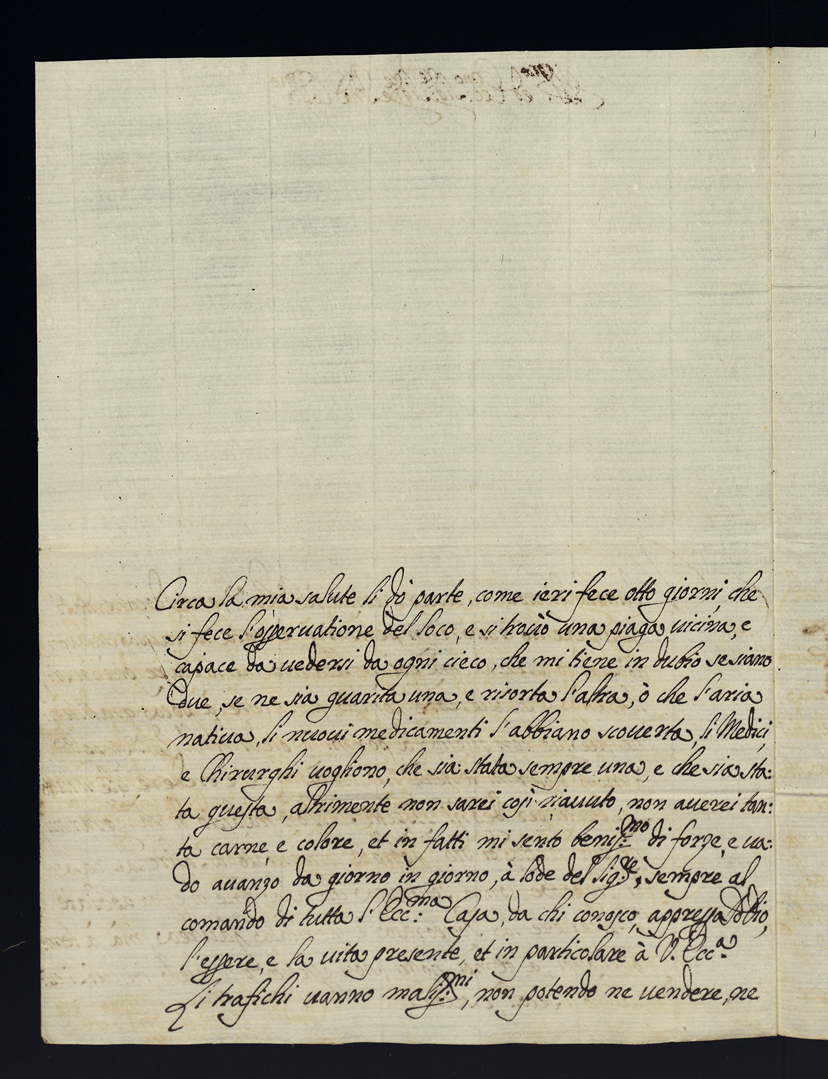 Circa la mia salute li dò parte, come ieri fece otto giorni, che
si fece l'osservatione del loco, e si trovò una piaga vicina, e
capace da vedersi da ogni cieco, che mi tiene in dubio se siano
due, se ne sia guarita una, e risorta l'altra, ò che l'aria
nativa, li nuovi medicamenti l'abbiano scoverta, li Medici,
e Chirurghi vogliono, che sia stata sempre una, e che sia sta:
ta questa, altrimente non sarei così riavuto, non averei tan:
ta carne e colore, et in fatti mi sento beniss:mo di forze, e va:
do avanzo da giorno in giorno, à lode del Sig:re, sempre al
comando di tutta l'Ecc:ma Casa, da chi conosco, appresso Dio,
l'essere, e la vita presente, et in particolare à V. Ecc:a
Li trafichi vanno maliss:mi, non potendo ne vendere, ne